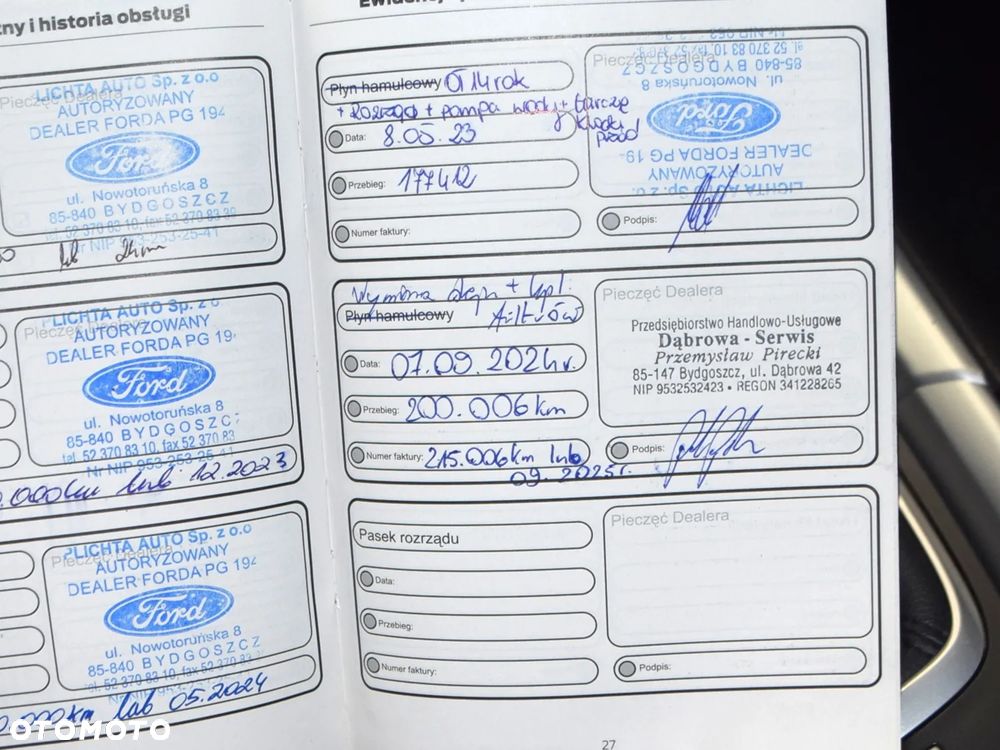 ny i historia obsługi
PLICHTA AUTO Sp. z o.o
Pieczęć Dealera
AUTORYZOWANY
DEALER FORDA PG 194
Ford
ul. Nowotoruńska 8
85-840 BYDGOSZCZ
tel. 52 370 83 10, fax 52 370 83 39
Nr NIP 953-253-25-41
PLICHTA AUTO Sp. z o
Pieczęć Dealera
AUTORYZOWANY
DEALER FORDA PG 19
Ford
ul. Nowotoruńska 8
85-840 BYDGOSZCZ
tel. 52 370 83 10, fax 52 370 83
Nr NIP 953-253-25-41
.000km lub 12.2023
PLICHTA AUTO Sp. z o.o
Pieczęć Dealera
AUTORYZOWANY
DEALER FORDA PG 194
Ford
ul. Nowotoruńska 8
85-840 BYDGOSZCZ
tel. 52 370 83 10, fax 52 370 83
0.000km lub 05.2024
Płyn hamulcowy OT 14 rok
+ Rozrząd + pompa wody + tarcze
klocki
przód
Data: 8.05.23
Przebieg: 177412
Numer faktury:
Pieczęć Dealera
PLICHTA AUTO Sp. z o.
AUTORYZOWANY
DEALER FORDA PG 19
Ford
ul. Nowotoruńska 8
85-840 BYDGOSZCZ
Podpis:
Wymiana oleju + kpl.
Płyn hamulcowy filtrów
Data: 07.09.2024r.
Przebieg: 200.006km
Numer faktury: 215.006km lub
09.2025r.
Pieczęć Dealera
Przedsiębiorstwo Handlowo-Usługowe
Dąbrowa - Serwis
Przemysław Pirecki
85-147 Bydgoszcz, ul. Dąbrowa 42
NIP 9532532423 • REGON 341228265
Podpis:
Pasek rozrządu
Data:
Przebieg:
Numer faktury:
Pieczęć Dealera
Podpis:
27
OTOMOTO